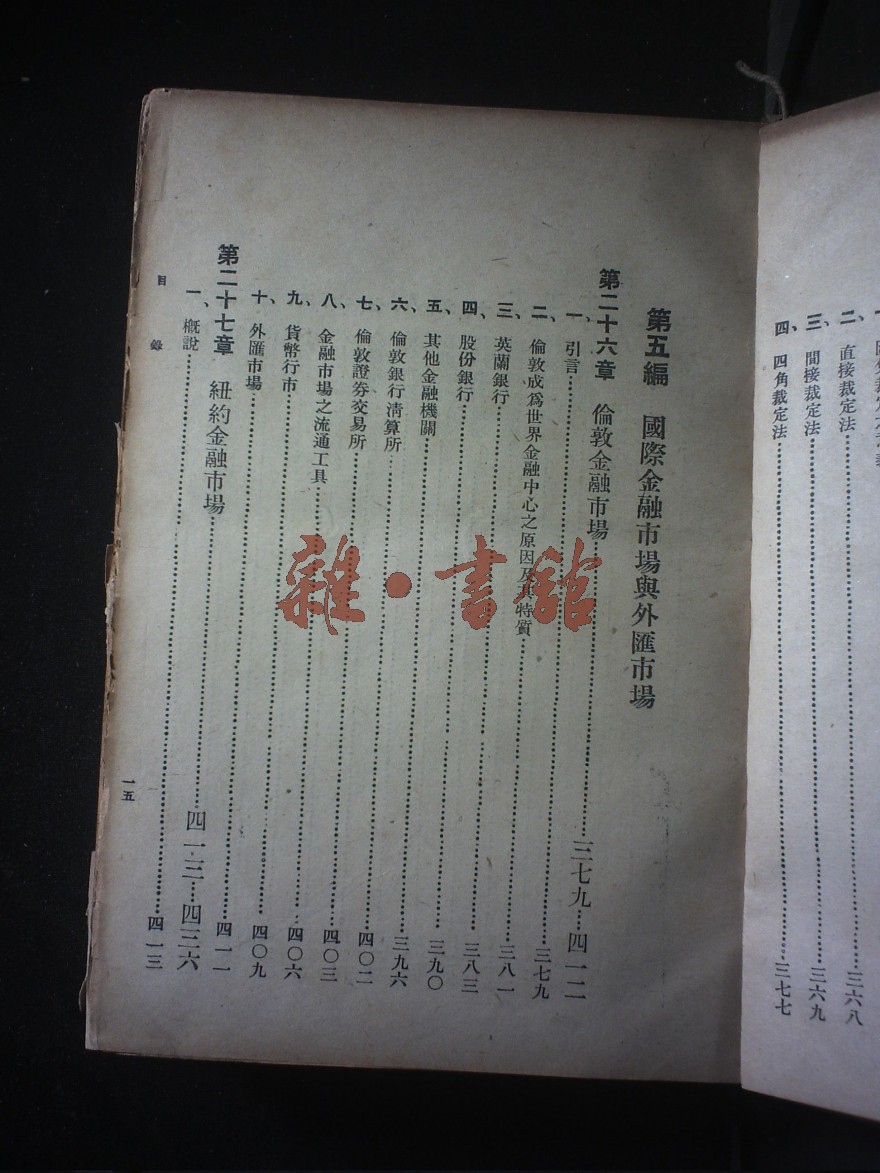 二、直接裁定法……三六八
三、間接裁定法……三六九
四、四角裁定法……三七七
第五編 國際金融市場與外匯市場
第二十六章 倫敦金融市場……三七九……四一二
一、引言……三七九
二、倫敦成爲世界金融中心之原因及其特質……三八一
三、英蘭銀行……三八三
四、股份銀行……三九〇
五、其他金融機關……三九六
六、倫敦銀行清算所……四〇二
七、倫敦證券交易所……四〇三
八、金融市場之流通工具……四〇六
九、貨幣行市……四〇九
十、外匯市場……四一一
第二十七章 紐約金融市場……四一三……四三六
一、概說……四一三
目錄
一五
雜·書館